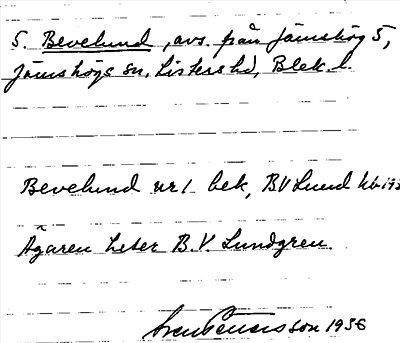 5. Bevelund, avs. från Jämshög 5,
Jämshögs sn. Listers hd, Blek. l.
Bevelund nr 1 bek, BV Lund kb 193
Ägaren heter B.V. Lundgren.
Sven Benersson 1936